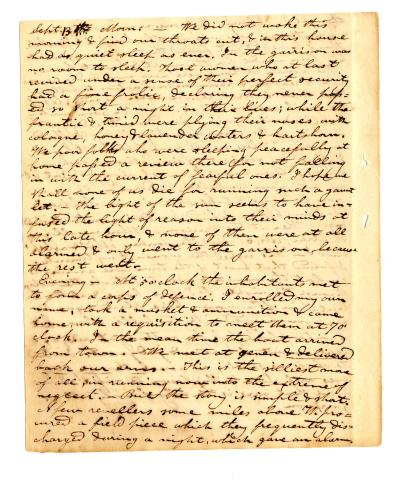 Sept. 13th Morn. — We did not wake this
morning & find our throats cut, & in this house
had as quiet sleep as ever. In the garrison was
no room to sleep. Those women who at last
revived under a sense of their perfect security
had a fine frolic, declaring they never pas-
ed so a night in their lives; while the
frantic & timid were plying their noses with
cologne, honey & lavender waters & hartshorn.
We poor folks who were sleeping peacefully at
home passed a review there for not falling
in with the current of fearful ones. I hope we
shall none of us die for running such a gaunt
let. — The light of the sun seems to have in-
fused the light of reason into their minds at
this late hour, & none of them were at all
alarmed & only went to the garrison, because
the rest went. —
Evening — At 5 o'clock the inhabitants met
to form a corps of defence. I enrolled my own
name, took a musket & ammunition & came
home, with a requisition to meet them at 7 o'
clock. In the mean time the boat arrived
from town. We meet at seven & delivered
back our arms. — This is the silliest move
of all pin running now into the extreme of
neglect. — But the story is simple & short.
A few revellers some miles above pro-
cured a field piece which they frequently dis-
charged during a night, which gave an alarm